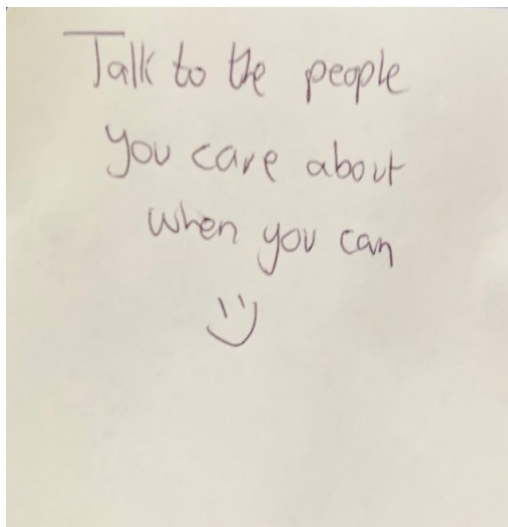 Talk to the people
you care about
when you can